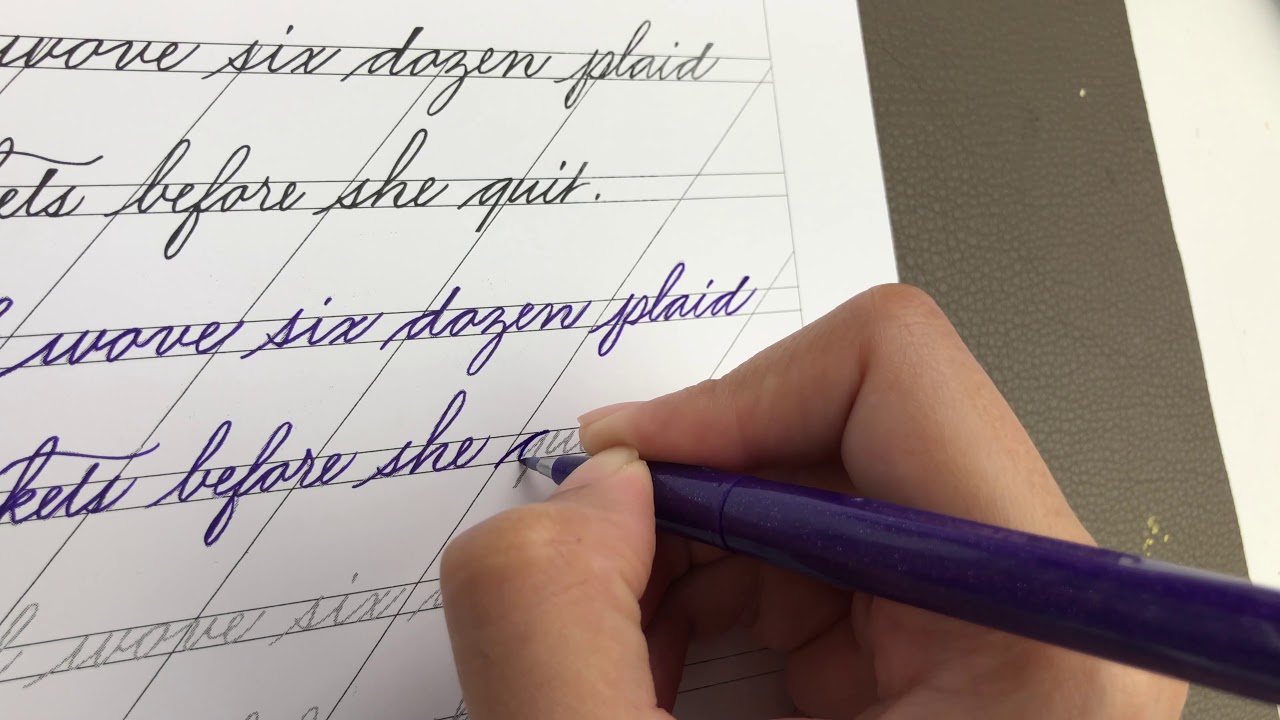 wove six dozen plaid
before she quit.
wove six dozen plaid
before she qu
wove six